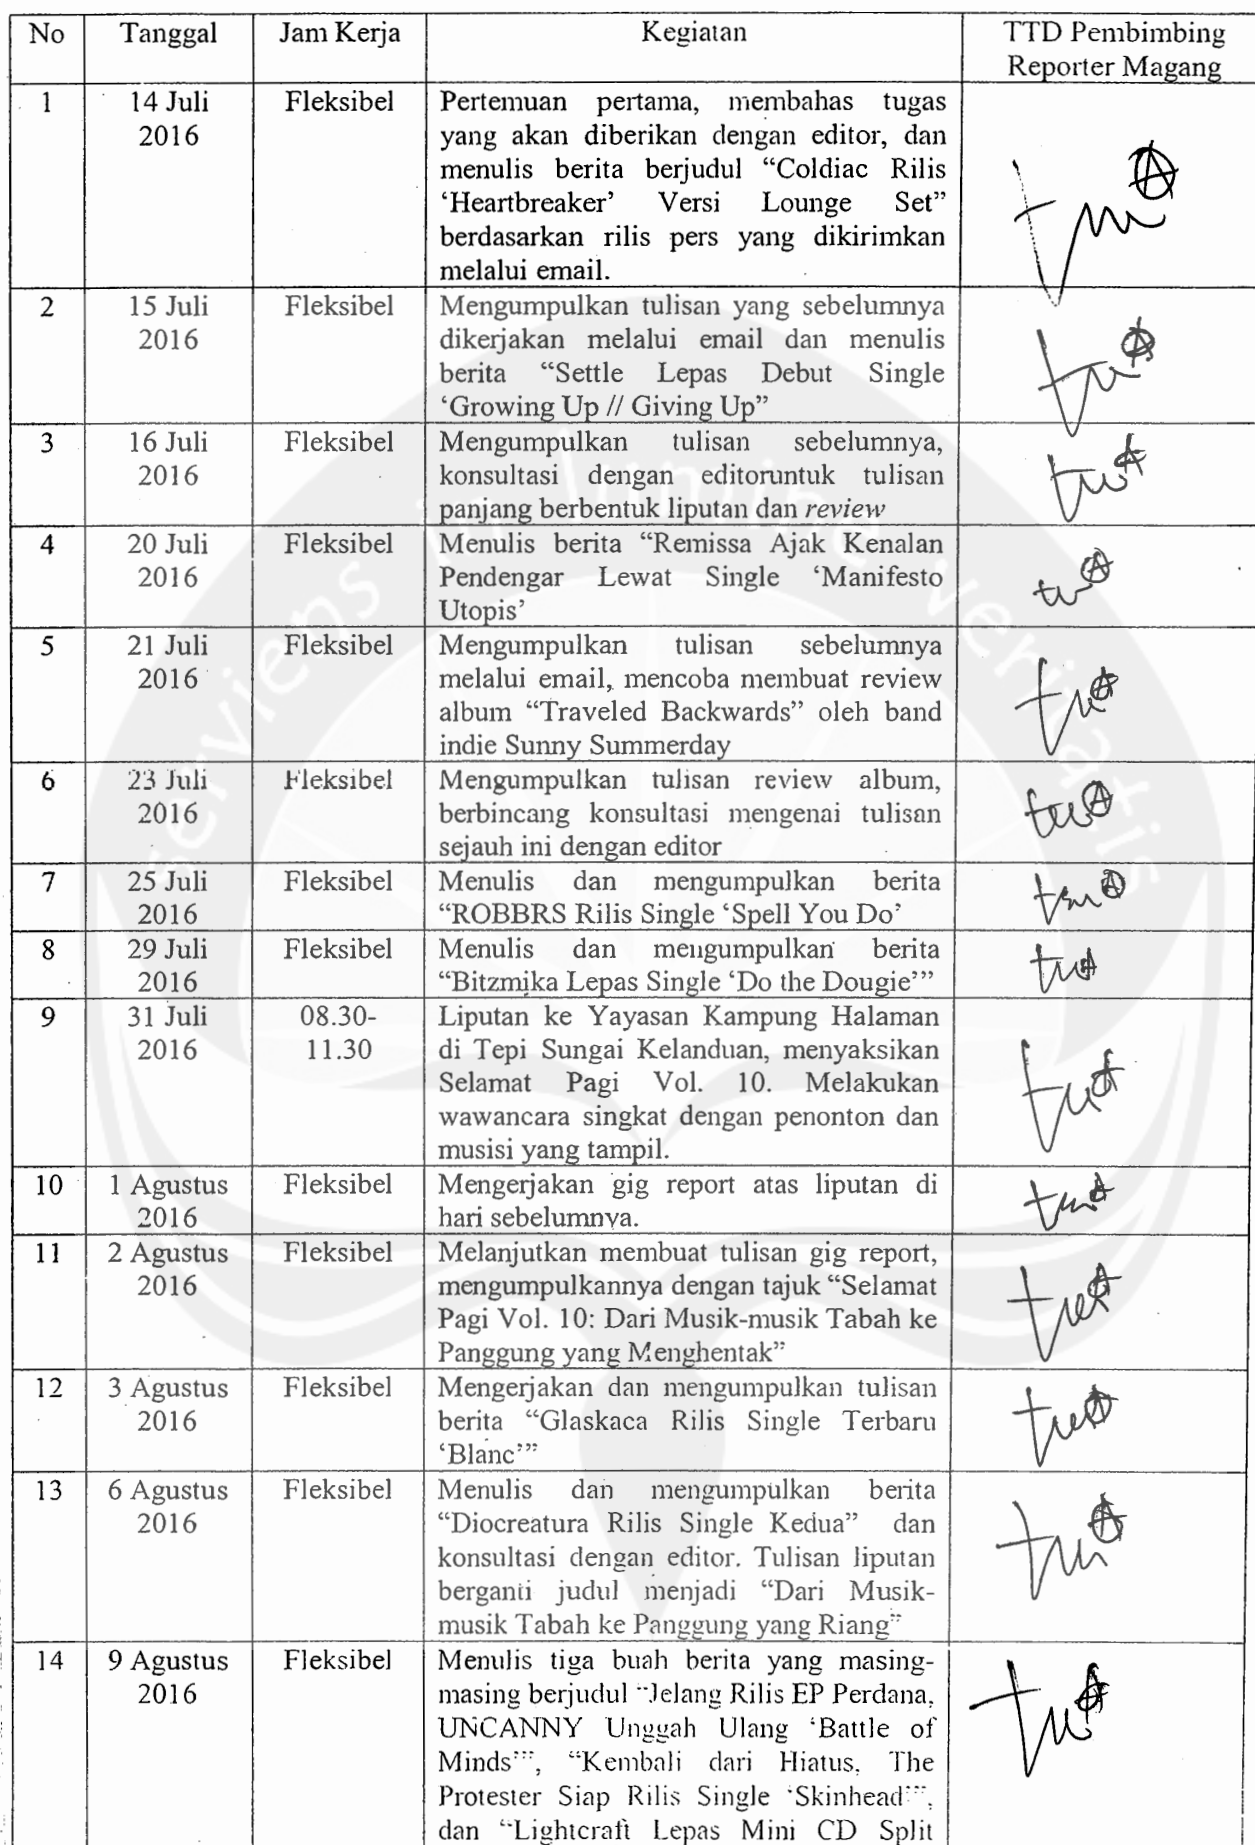 No Tanggal Jam Kerja Kegiatan TTD Pembimbing
Reporter Magang
1 14 Juli Fleksibel Pertemuan pertama, membahas tugas
2016 yang akan diberikan dengan editor, dan
menulis berita berjudul “Coldiac Rilis
‘Heartbreaker’ Versi Lounge Set”
berdasarkan rilis pers yang dikirimkan
melalui email.
2 15 Juli Fleksibel Mengumpulkan tulisan yang sebelumnya
2016 dikerjakan melalui email dan menulis
berita “Settle Lepas Debut Single
‘Growing Up // Giving Up”
3 16 Juli Fleksibel Mengumpulkan tulisan sebelumnya,
2016 konsultasi dengan editoruntuk tulisan
panjang berbentuk liputan dan review
4 20 Juli Fleksibel Menulis berita “Remissa Ajak Kenalan
2016 Pendengar Lewat Single ‘Manifesto
Utopis’
5 21 Juli Fleksibel Mengumpulkan tulisan sebelumnya
2016 melalui email, mencoba membuat review
album “Traveled Backwards” oleh band
indie Sunny Summerday
6 23 Juli Fleksibel Mengumpulkan tulisan review album,
2016 berbincang konsultasi mengenai tulisan
sejauh ini dengan editor
7 25 Juli Fleksibel Menulis dan mengumpulkan berita
2016 “ROBBRS Rilis Single ‘Spell You Do’
8 29 Juli Fleksibel Menulis dan mengumpulkan berita
2016 “Bitzmika Lepas Single ‘Do the Dougie’”
9 31 Juli 08.30- Liputan ke Yayasan Kampung Halaman
2016 11.30 di Tepi Sungai Kelanduan, menyaksikan
Selamat Pagi Vol. 10. Melakukan
wawancara singkat dengan penonton dan
musisi yang tampil.
10 1 Agustus Fleksibel Mengerjakan gig report atas liputan di
2016 hari sebelumnya.
11 2 Agustus Fleksibel Melanjutkan membuat tulisan gig report,
2016 mengumpulkannya dengan tajuk “Selamat
Pagi Vol. 10: Dari Musik-musik Tabah ke
Panggung yang Menghentak”
12 3 Agustus Fleksibel Mengerjakan dan mengumpulkan tulisan
2016 berita “Glaskaca Rilis Single Terbaru
‘Blanc’”
13 6 Agustus Fleksibel Menulis dan mengumpulkan berita
2016 “Diocreatura Rilis Single Kedua” dan
konsultasi dengan editor. Tulisan liputan
berganti judul menjadi “Dari Musik-
musik Tabah ke Panggung yang Riang”
14 9 Agustus Fleksibel Menulis tiga buah berita yang masing-
2016 masing berjudul “Jelang Rilis EP Perdana,
UNCANNY Unggah Ulang ‘Battle of
Minds’”, “Kembali dari Hiatus, The
Protester Siap Rilis Single ‘Skinhead’”,
dan “Lightcraft Lepas Mini CD Split
serviens in lumine veritatis